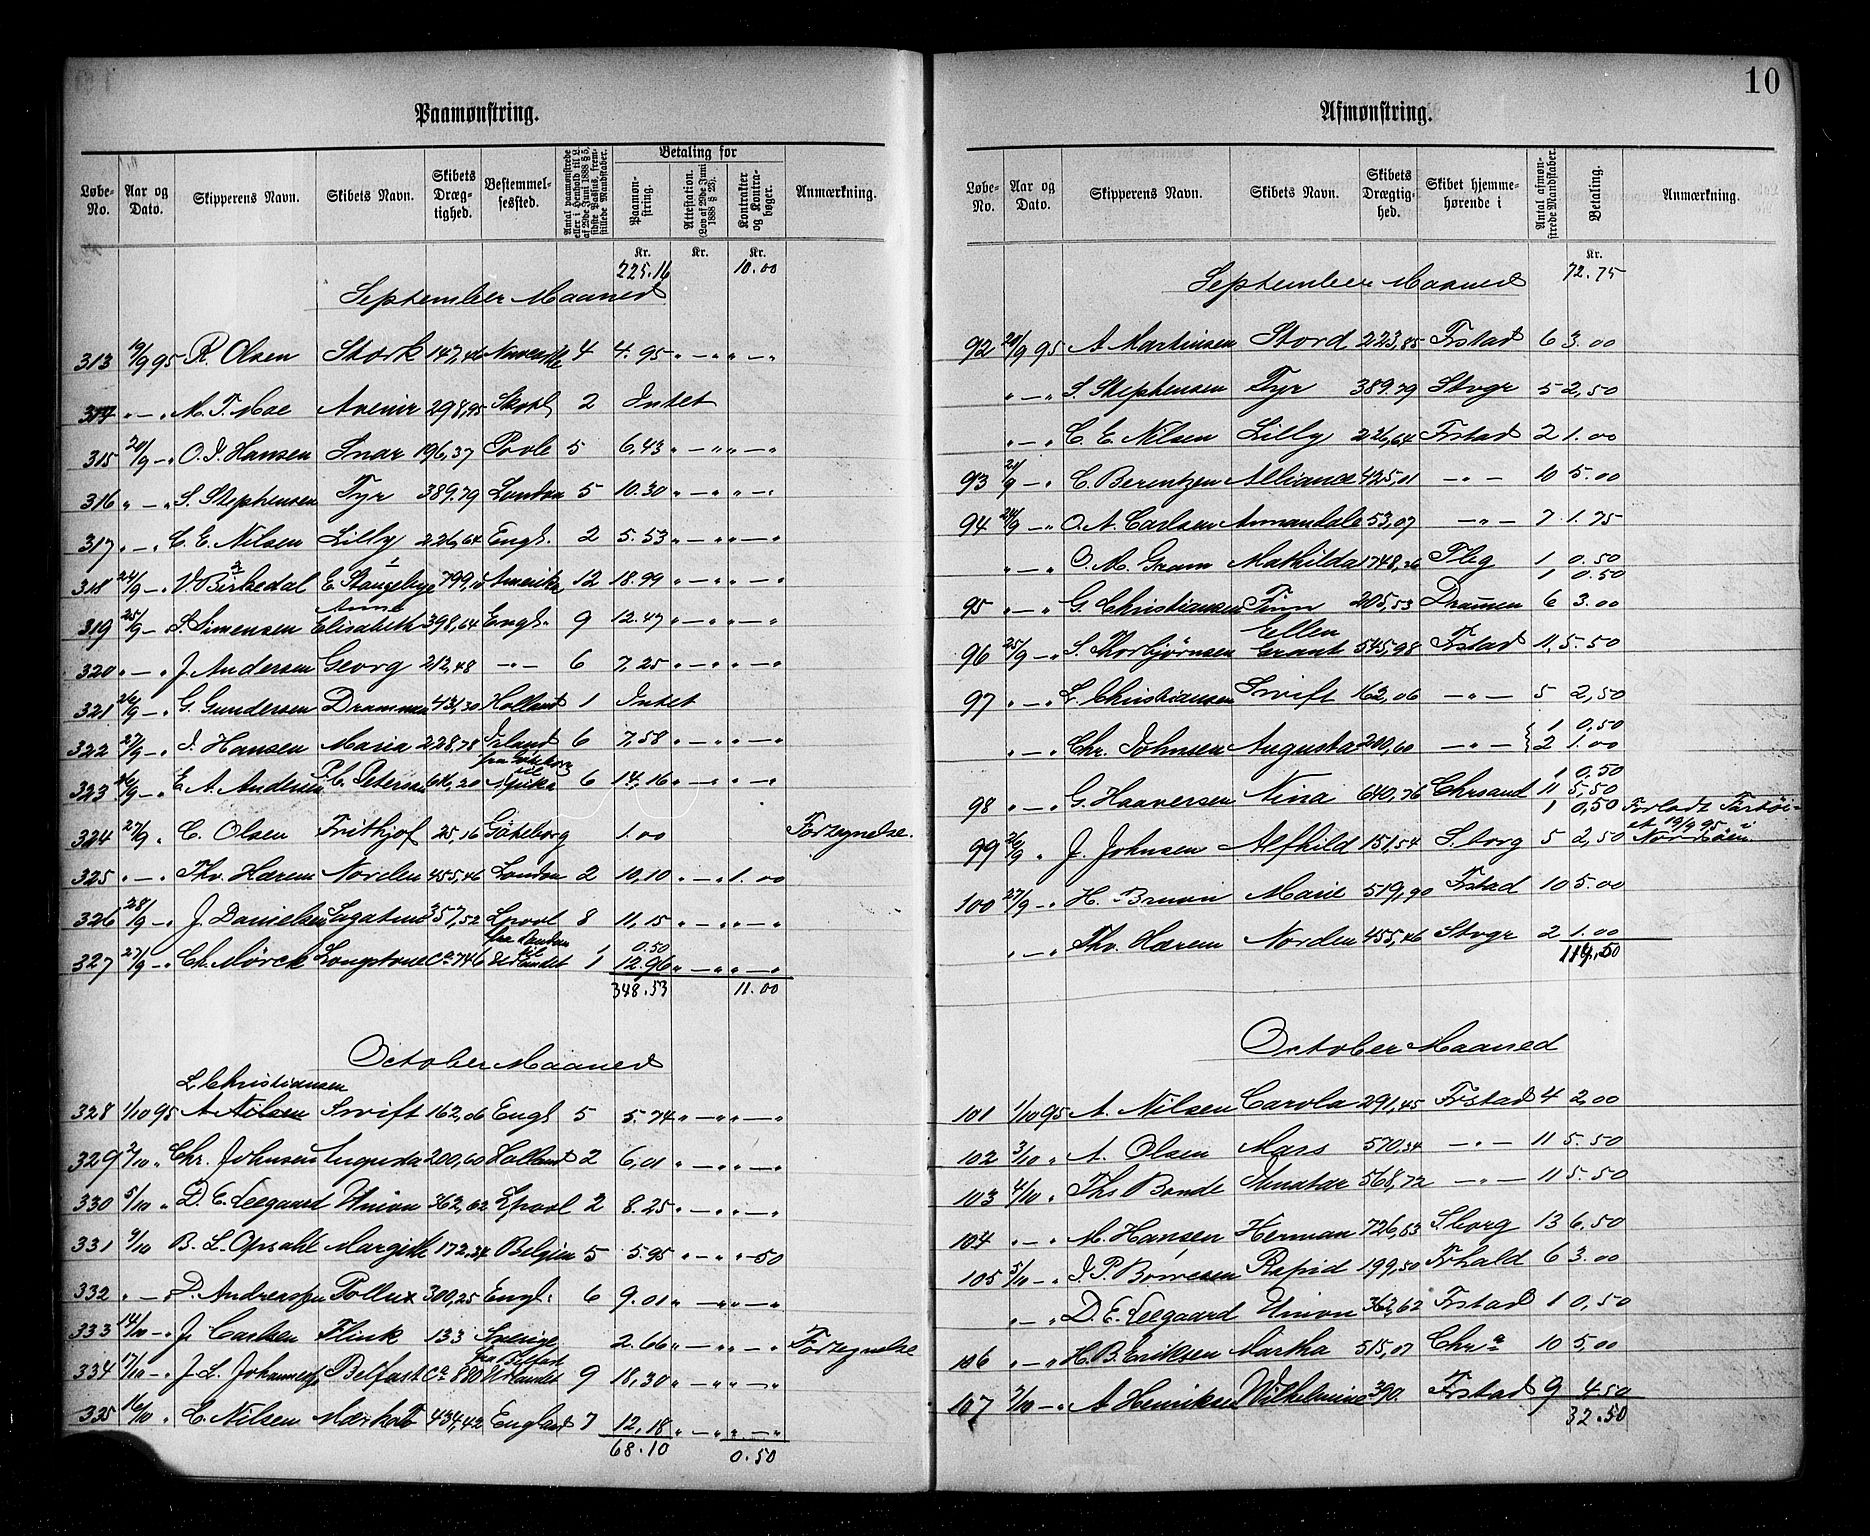 10
Paamønstring.
Løbe-No. Aar og Dato. Skipperens Navn. Skibets Navn. Skibets Dræg-tighed. Bestemmel-sessted. Betaling for Paamøn-string. Attestation. (Lov af 29de Juni 1888 § 23). Kontrakter og Kontra-bøger. Anmærkning.
Kr. Kr. Kr.
225.16 10.00
September Maaned
313 19/9 95 R. Olsen Stork 147,46 4 4.95 " — " " — "
314 " — " M. T. Moe Avenir 298,95 2 Intet
315 20/9 — " O. J. Hansen Snar 196,37 Poole 5 6,43 " — " " — "
316 " — " S. Stephensen Tyr 389.79 London 5 10.30 " — " " — "
317 " — " C. E. Nilsen Lilly 226,64 Engl. 2 5.53 " — " " — "
318 24/9 — " V. Birkedal E. Stangebye 799,10 Amerika 12 18.99 " — " " — "
319 25/9 — " S. Simensen Anne Elisabeth 398,64 Engl. 9 12.47 " — " " — "
320 " — " J. Andersen Georg 212,48 — " — 6 7.25 " — " " — "
321 26/9 — " G. Gundersen Drammen 431,30 Holland 1 Intet
322 27/9 — " J. Hansen Maria 228,78 Irland 6 7,58 " — " " — "
323 26/9 — " E. A. Andersen P. C. Petersen fra Göteborg til Afrika 6 14,16 " — " " — "
324 27/9 " C. Olsen Frithjof 25,16 Göteborg 1.00 Forsegnelse.
325 " — " Thv. Hærem Norden 455,46 London 2 10,10 " — " 1.00
326 28/9 — " J. Danielsen 357,52 Lpool 8 11,15 " — " " — "
327 27/9 — " Ch. Mörck ca 746 fra London til Udlandet 1 0.50 12.96 " — " " — "
348.53 11.00
October Maaned
L. Christiansen
328 1/10 95 A. Nilsen Swift 162,06 Engl 5 5.74 " — " " — "
329 2/10 " Chr. Johnsen Augusta 200,60 Holland 2 6,01 " — " " — "
330 5/10 " D. E. Leegaard Union 362,62 Lpool 2 8.25 " — " " — "
331 9/10 B. L. Opsahl Margith 172.34 Belgien 5 5.95 " — " " — 50
332 " — " P. Andreassen Pollux 300,25 Engl. 6 9.01 " — " " — "
333 14/10 — " J. Carlsen Flink 133 Sverige 2.66 " — " " — " Forsegnelse
334 17/10 — " J. L. Johannessen Belfast ca 880 fra Belfast Udlandet 9 18,30 " — " " — "
335 16/10 " C. Nilsen 434,42 England 7 12,18 " — " " — "
68.10 0.50
Afmønstring.
Løbe-No. Aar og Dato. Skipperens Navn. Skibets Navn. Skibets Drægtig-hed. Skibet hjemme-hørende i Antal afmøn-strede Mandskaber. Betaling. Anmærkning.
Kr.
September Maaned 72.75
92 20/9 95 A. Martinsen Stord 223,85 Frstad 6 3.00
" — " S. Stephensen Tyr 389.79 Stvgr 5 2,50
" — " C. E. Nilsen Lilly 226,64 Frstad 2 1.00
93 21/9 — " C. Berentzen Alliance 425,01 — " — 10 5.00
94 24/9 — " O. A. Carlsen Annandale 53,07 — " — 7 1.75
" — " O. M. Gram Mathilda 748,26 1 0.50
1 0.50
95 " — " G. Christiansen Finn 205,53 Drammen 6 3.00
96 25/9 — " S. Thorbjørnsen Ellen Grant 545,98 Frstad 11, 5.50
97 " — " L. Christiansen Swift 162,06 — " — 5 2,50
1 0,50
" — " Chr. Johnsen Augusta 200,60 — " — 2 1.00
1 0,50
98 " — " G. Haaversen Nina 640,76 Chrsand 11 5,50
1 0,50 Forlade Fartøi-et 19/9 95 i Nordsøen
99 26/9 " J. Johnsen Alfhild 151,54 S.borg 5 2,50
100 27/9 — " H. Bruun Marie 519,90 Frstad 10 5.00
" — " Thv. Hærem Norden 455,46 Stvgr 2 1.00
114,50
October Maaned
101 1/10 95 A. Nilsen Carola 291,45 Frstad 4 2,00
102 3/10 " A. Olsen Mars 570,34 — " — 11 5.50
103 4/10 " Ths Bonde Senator 568,72 — " — 11 5.50
104 " — " M. Hansen Herman 726,53 S.borg 13 6,50
105 5/10 — " J. P. Borresen Rapid 199,50 Frhald 6 3.00
" — " D. E. Leegaard Union 362,62 Frstad 1 0,50
106 " — " H. B. Eriksen Martha 515,07 Chr.a 10 5,00
107 7/10 — " A. Henriksen Wilhelmine 390. Frstad 9 4.50
32.50